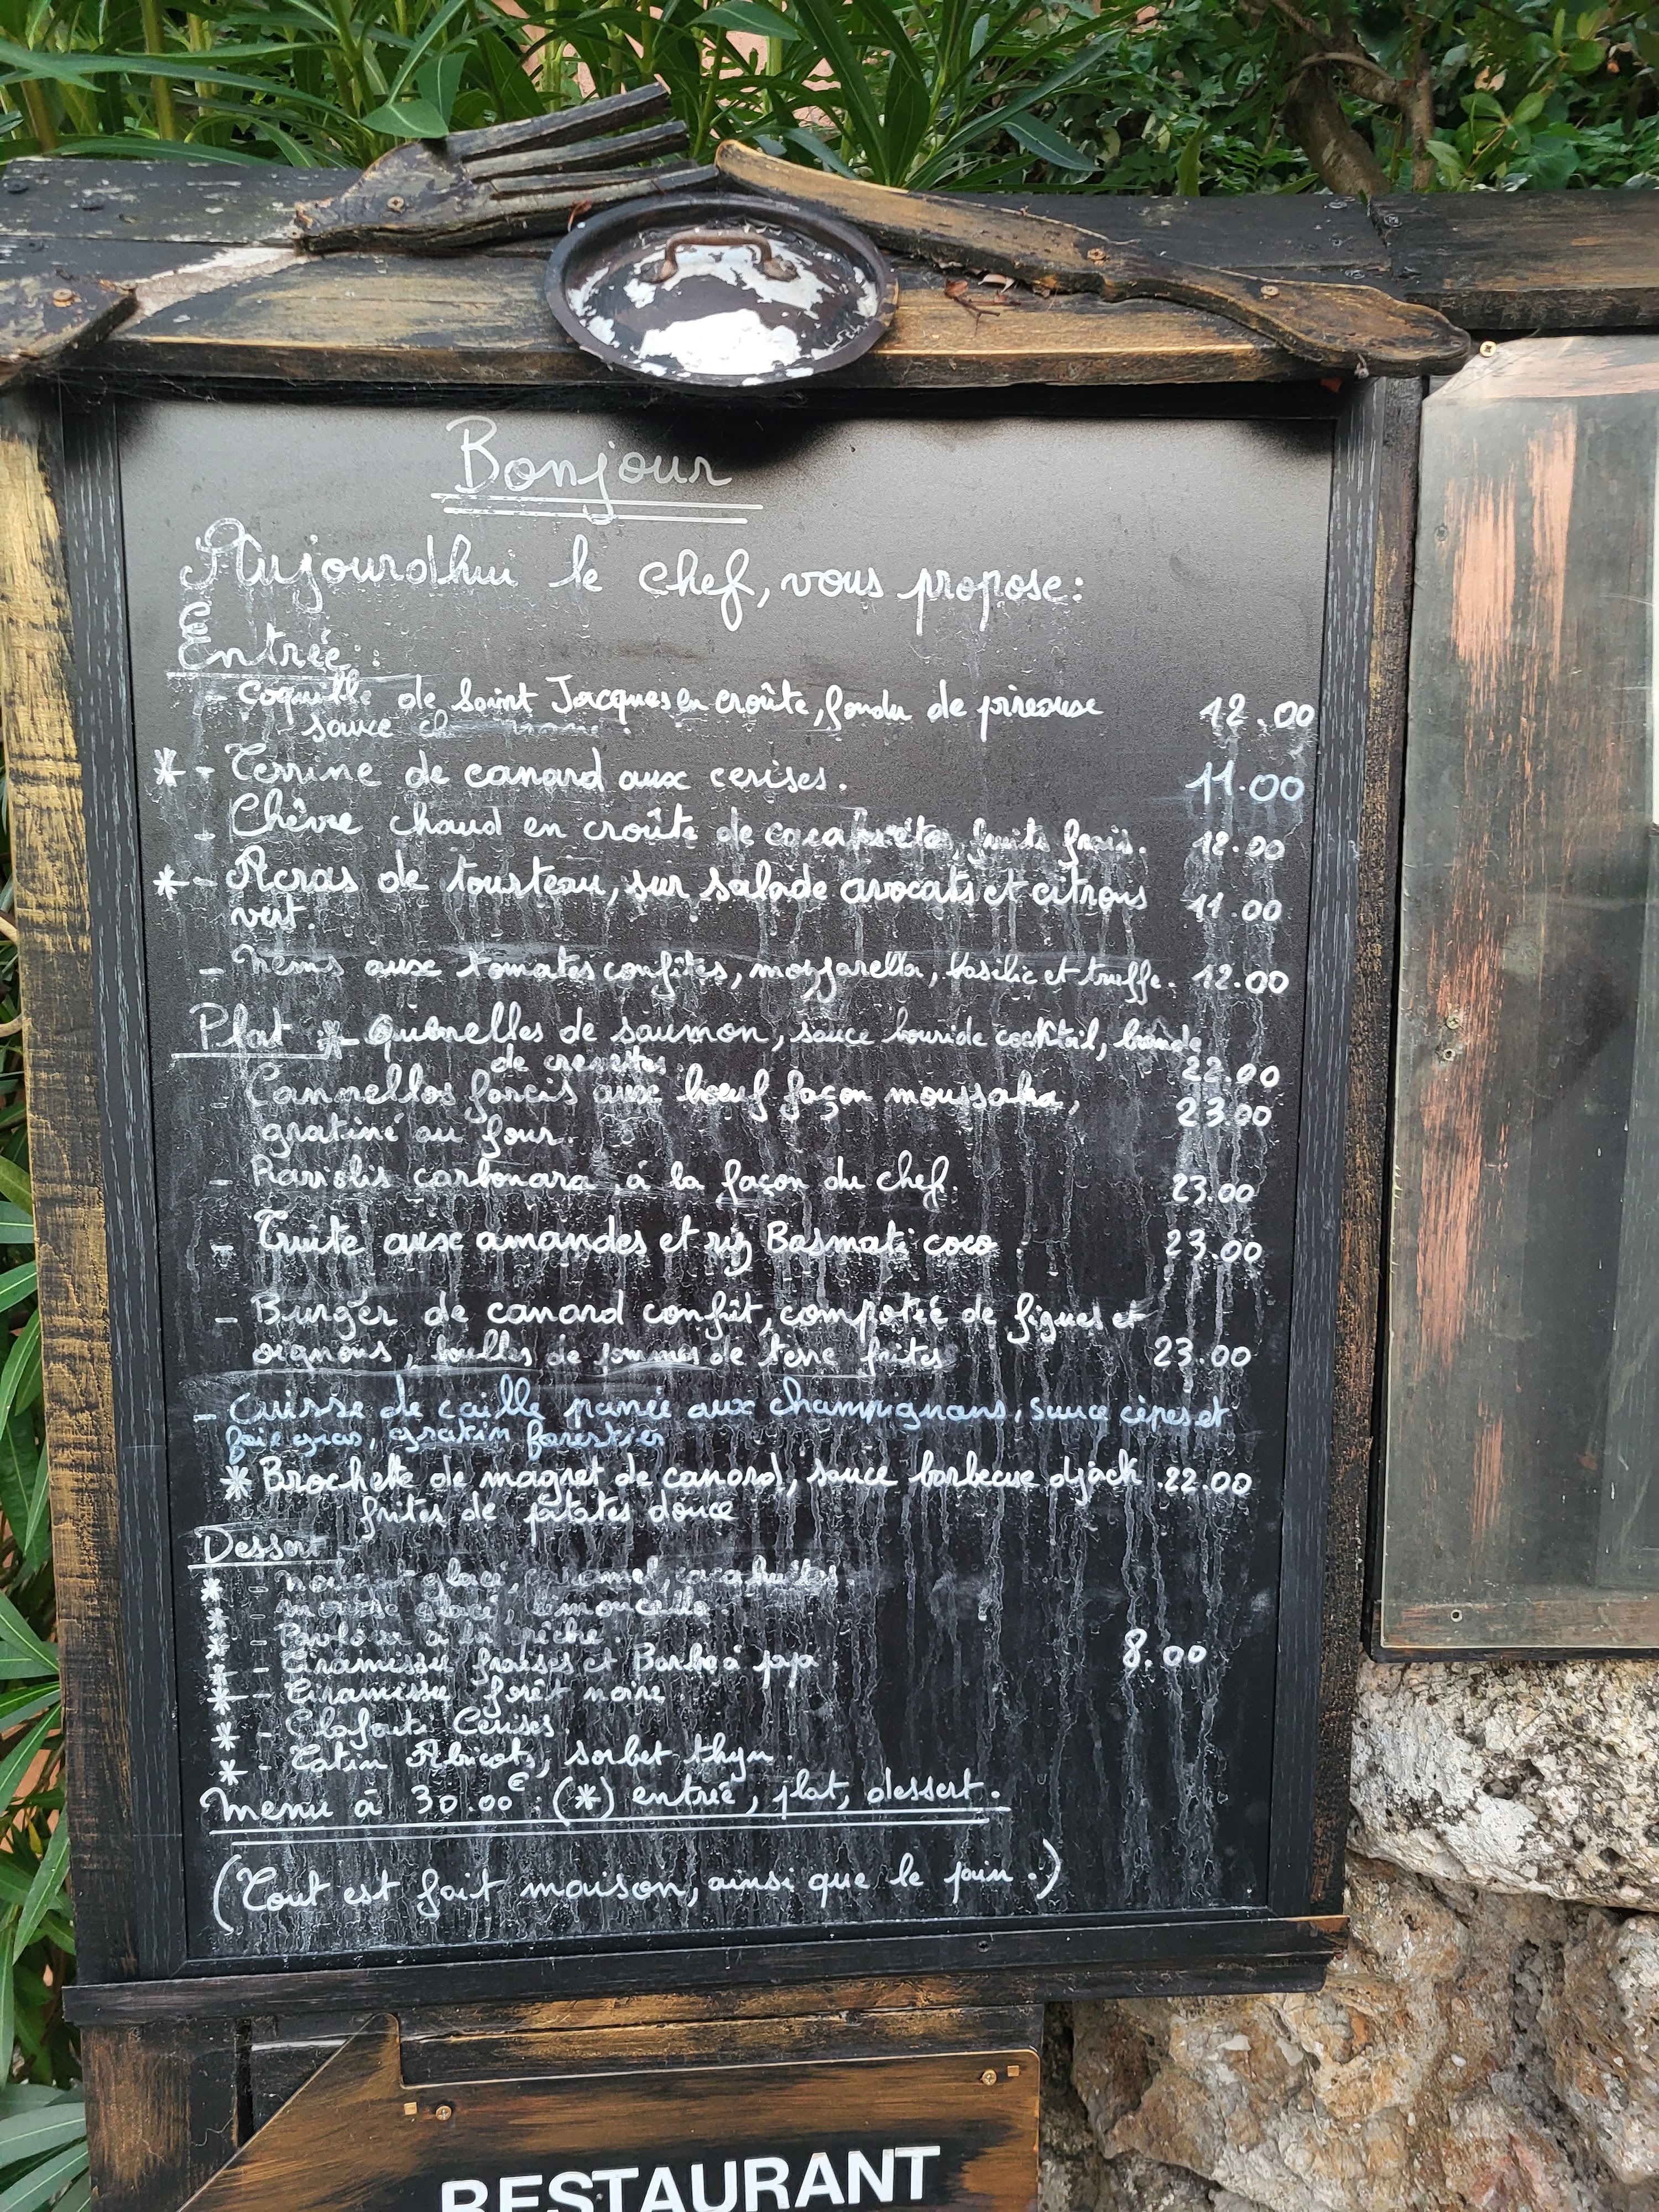 Bonjour
Aujourdhui le chef, vous propose:
E
Entrée:
- Coquille de Saint Jacques en croûte, fondu de
sauce
12.00
* - Terrine de canard aux cerises. 11.00
- Chèvre chaud en croûte de cacahuètes, fruits frais. 12.00
* - Acras de tourteau, sur salade avocats et citrons 11.00
vert.
- Nems aux tomates confites, mozzarella, basilic et truffe. 12.00
Plat : * - Quenelles de saumon, sauce cocktail,
de crevettes. 22.00
- Cannellos farcis aux bœuf façon moussaka, 23.00
gratiné au four.
- Raviolis carbonara à la façon du chef. 23.00
- Truite aux amandes et riz Basmati coco. 23.00
- Burger de canard confit, compotée de figues et
oignons, boulles de pommes de terre frites 23.00
- Cuisse de caille panée aux champignons, sauce cèpes et
foie gras, gratin forestier
* Brochette de magret de canard, sauce barbecue djack 22.00
frites de patates douce
Dessert
* - glacé, caramel, cacahuètes.
* - glacé, limoncello.
* - à la pêche.
* - Tiramissu fraises et Barbe à papa 8.00
* - Tiramissu forêt noire
* - Clafouti Cerises.
* - Tatin Abricots, sorbet thym.
Menu à 30.00€: (*) entrée, plat, dessert.
(Tout est fait maison, ainsi que le pain.)
RESTAURANT